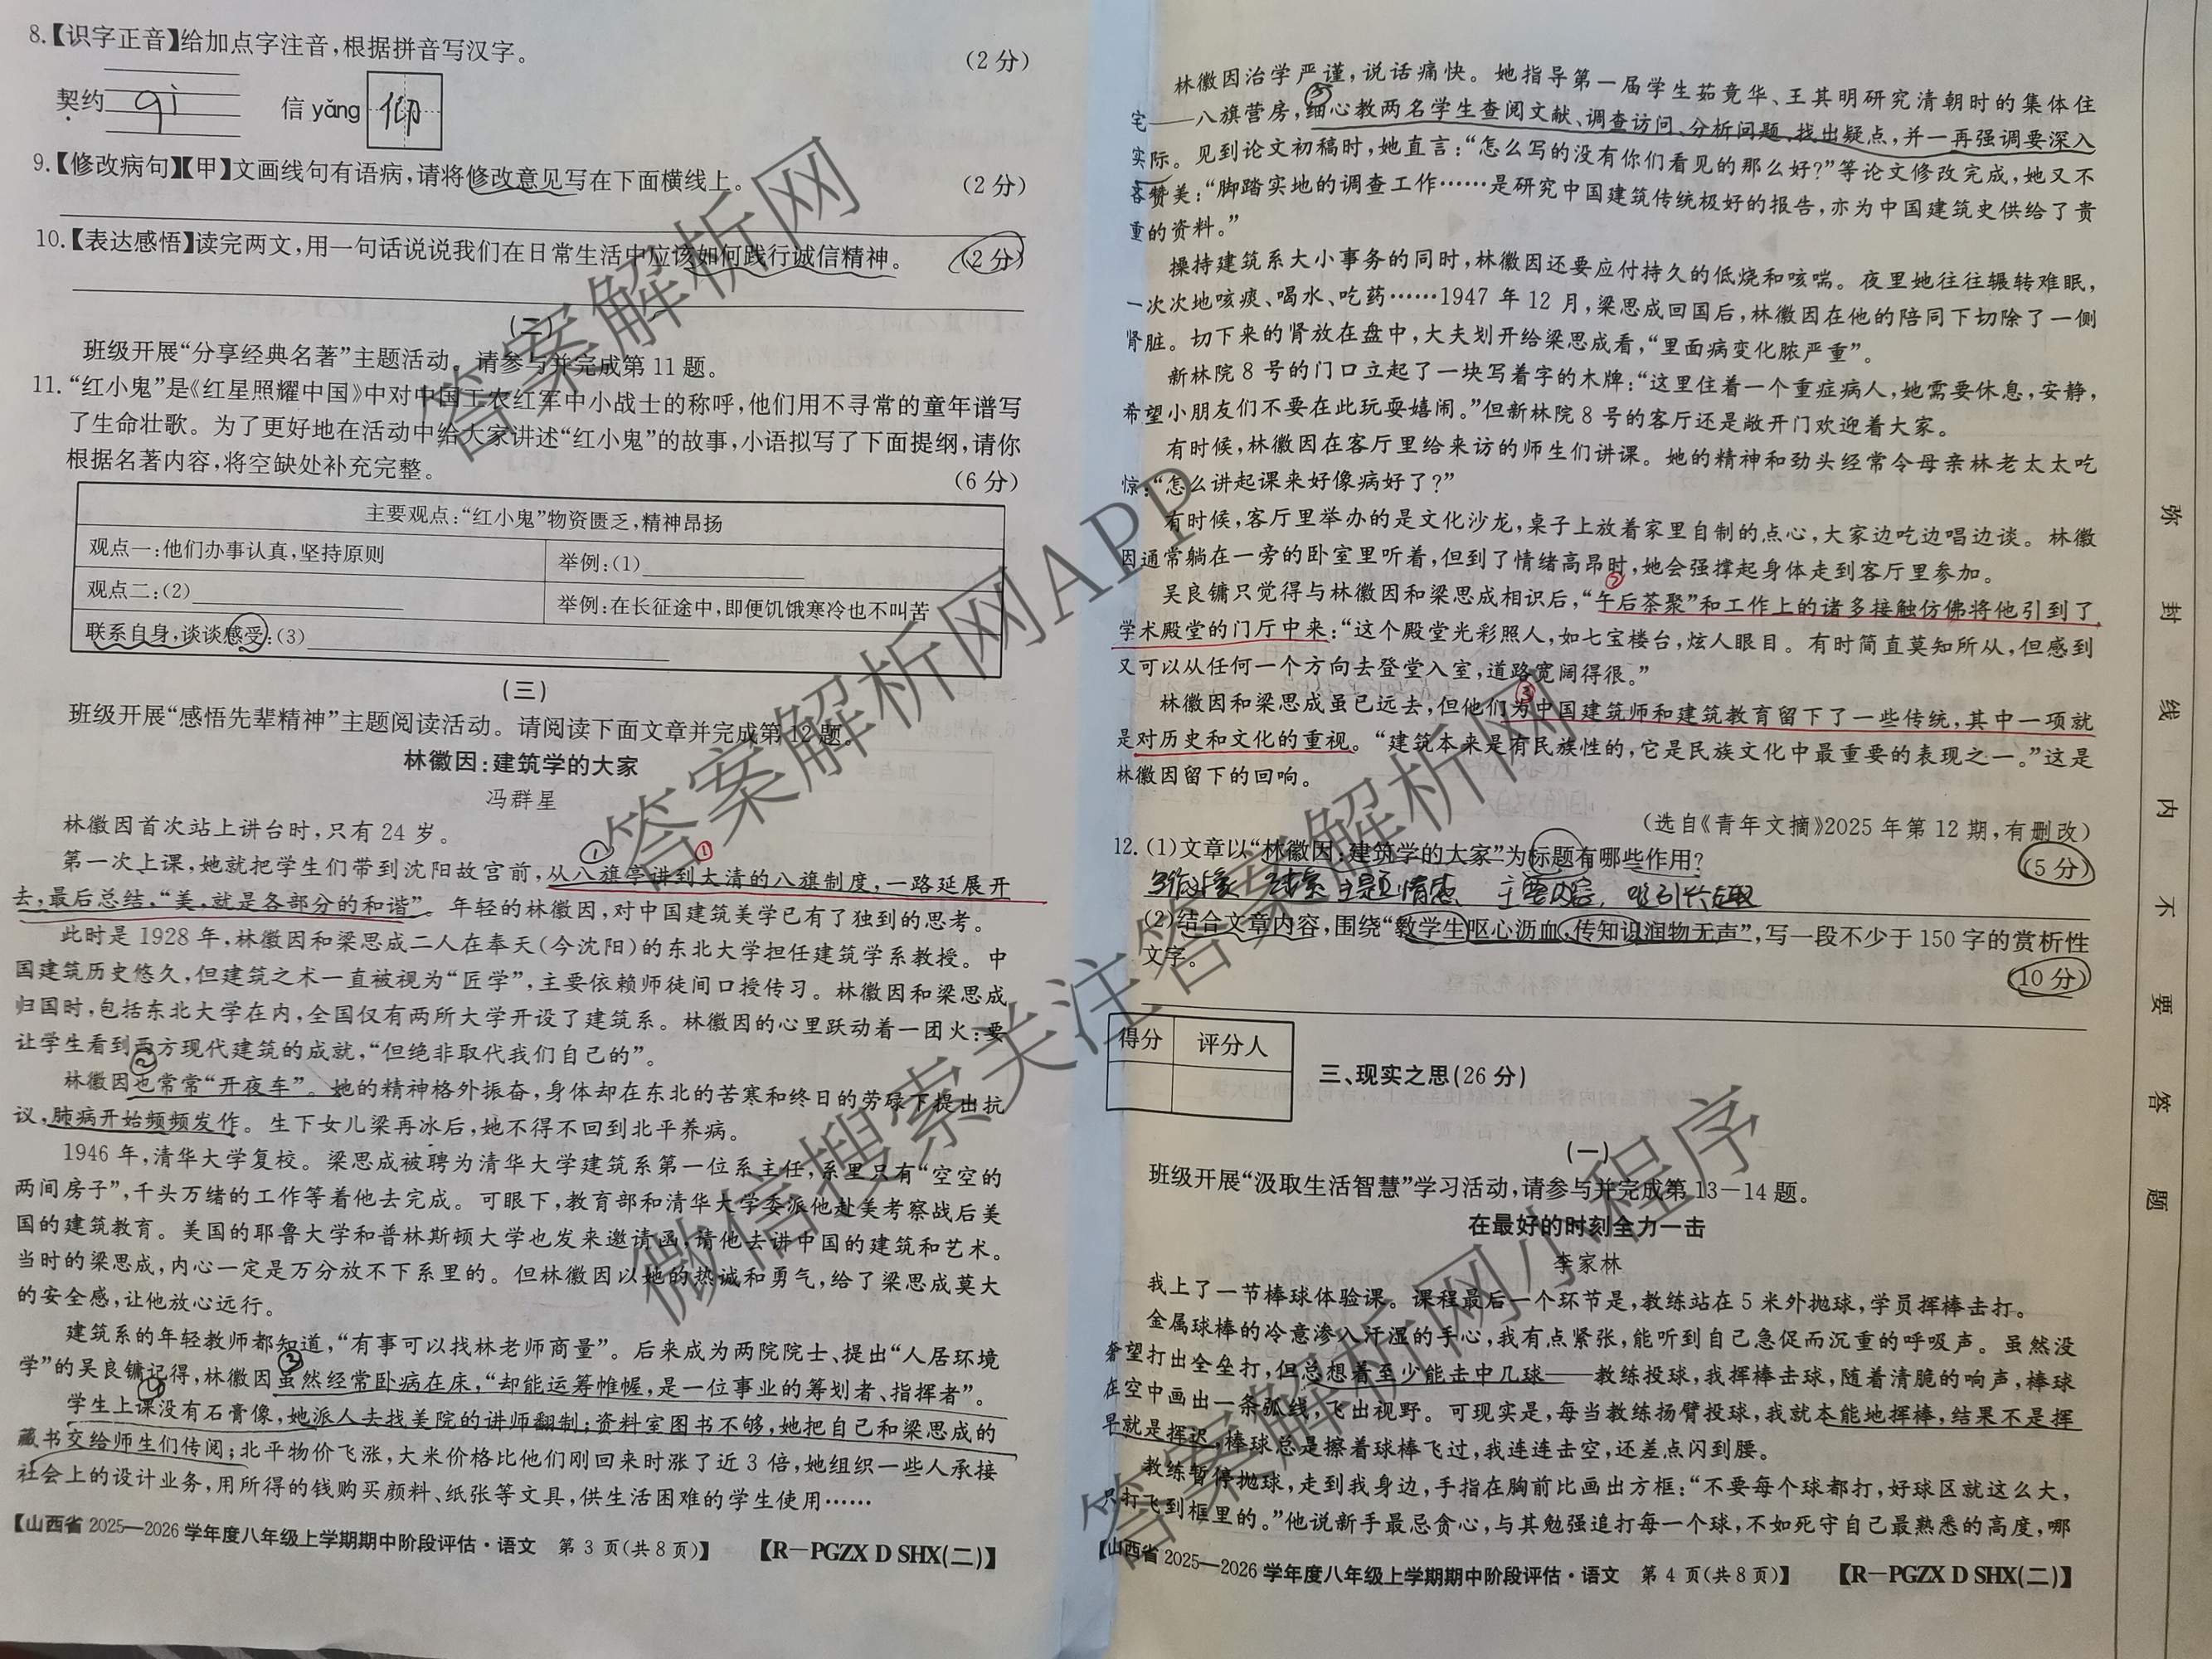 8.【识字正音】给加点字注音,根据拼音写汉字。 (2 分)
契约 qì 信 yǎng 仰
9.【修改病句】【甲】文画线句有语病,请将修改意见写在下面横线上。 (2 分)
10.【表达感悟】读完两文,用一句话说说我们在日常生活中应该如何践行诚信精神。 (2 分)
(二)
班级开展“分享经典名著”主题活动。请参与并完成第 11 题。
11.“红小鬼”是《红星照耀中国》中对中国工农红军中小战士的称呼,他们用不寻常的童年谱写
了生命壮歌。为了更好地在活动中给大家讲述“红小鬼”的故事,小语拟写了下面提纲,请你
根据名著内容,将空缺处补充完整。 (6 分)
主要观点:“红小鬼”物资匮乏,精神昂扬
观点一:他们办事认真,坚持原则 举例:(1)
观点二:(2) 举例:在长征途中,即便饥饿寒冷也不叫苦
联系自身,谈谈感受:(3)
(三)
班级开展“感悟先辈精神”主题阅读活动。请阅读下面文章并完成第 12 题。
林徽因:建筑学的大家
冯群星
林徽因首次站上讲台时,只有 24 岁。
① ①
第一次上课,她就把学生们带到沈阳故宫前,从八旗亭讲到大清的八旗制度,一路延展开
去,最后总结,“美,就是各部分的和谐”。年轻的林徽因,对中国建筑美学已有了独到的思考。
此时是 1928 年,林徽因和梁思成二人在奉天(今沈阳)的东北大学担任建筑学系教授。中
国建筑历史悠久,但建筑之术一直被视为“匠学”,主要依赖师徒间口授传习。林徽因和梁思成
归国时,包括东北大学在内,全国仅有两所大学开设了建筑系。林徽因的心里跃动着一团火:要
让学生看到西方现代建筑的成就,“但绝非取代我们自己的”。
②
林徽因也常常“开夜车”。她的精神格外振奋,身体却在东北的苦寒和终日的劳碌下提出抗
议,肺病开始频频发作。生下女儿梁再冰后,她不得不回到北平养病。
1946 年,清华大学复校。梁思成被聘为清华大学建筑系第一位系主任,系里只有“空空的
两间房子”,千头万绪的工作等着他去完成。可眼下,教育部和清华大学委派他赴美考察战后美
国的建筑教育。美国的耶鲁大学和普林斯顿大学也发来邀请函,请他去讲中国的建筑和艺术。
当时的梁思成,内心一定是万分放不下系里的。但林徽因以她的热诚和勇气,给了梁思成莫大
的安全感,让他放心远行。
建筑系的年轻教师都知道,“有事可以找林老师商量”。后来成为两院院士、提出“人居环境
③
学”的吴良镛记得,林徽因虽然经常卧病在床,“却能运筹帷幄,是一位事业的筹划者、指挥者”。
④
学生上课没有石膏像,她派人去找美院的讲师翻制;资料室图书不够,她把自己和梁思成的
藏书交给师生们传阅;北平物价飞涨,大米价格比他们刚回来时涨了近 3 倍,她组织一些人承接
社会上的设计业务,用所得的钱购买颜料、纸张等文具,供生活困难的学生使用……
【山西省 2025—2026 学年度八年级上学期期中阶段评估·语文 第 3 页(共 8 页)】 【R-PGZX D SHX(二)】
林徽因治学严谨,说话痛快。她指导第一届学生茹竟华、王其明研究清朝时的集体住
⑤
宅——八旗营房,细心教两名学生查阅文献、调查访问、分析问题、找出疑点,并一再强调要深入
实际。见到论文初稿时,她直言:“怎么写的没有你们看见的那么好?”等论文修改完成,她又不
吝赞美:“脚踏实地的调查工作……是研究中国建筑传统极好的报告,亦为中国建筑史供给了贵
重的资料。”
操持建筑系大小事务的同时,林徽因还要应付持久的低烧和咳喘。夜里她往往辗转难眠,
一次次地咳痰、喝水、吃药……1947 年 12 月,梁思成回国后,林徽因在他的陪同下切除了一侧
肾脏。切下来的肾放在盘中,大夫划开给梁思成看,“里面病变化脓严重”。
新林院 8 号的门口立起了一块写着字的木牌:“这里住着一个重症病人,她需要休息,安静,
希望小朋友们不要在此玩耍嬉闹。”但新林院 8 号的客厅还是敞开门欢迎着大家。
有时候,林徽因在客厅里给来访的师生们讲课。她的精神和劲头经常令母亲林老太太吃
惊:“怎么讲起课来好像病好了?”
有时候,客厅里举办的是文化沙龙,桌子上放着家里自制的点心,大家边吃边唱边谈。林徽
因通常躺在一旁的卧室里听着,但到了情绪高昂时,她会强撑起身体走到客厅里参加。
②
吴良镛只觉得与林徽因和梁思成相识后,“午后茶聚”和工作上的诸多接触仿佛将他引到了
学术殿堂的门厅中来:“这个殿堂光彩照人,如七宝楼台,炫人眼目。有时简直莫知所从,但感到
又可以从任何一个方向去登堂入室,道路宽阔得很。”
③
林徽因和梁思成虽已远去,但他们为中国建筑师和建筑教育留下了一些传统,其中一项就
是对历史和文化的重视。“建筑本来是有民族性的,它是民族文化中最重要的表现之一。”这是
林徽因留下的回响。
(选自《青年文摘》2025 年第 12 期,有删改)
12.(1)文章以“林徽因:建筑学的大家”为标题有哪些作用? (5 分)
线索 主题情感 主要内容, 吸引兴趣
(2)结合文章内容,围绕“教学生呕心沥血,传知识润物无声”,写一段不少于 150 字的赏析性
文字。 (10 分)
得分 评分人
三、现实之思(26 分)
(一)
班级开展“汲取生活智慧”学习活动,请参与并完成第 13—14 题。
在最好的时刻全力一击
李家林
我上了一节棒球体验课。课程最后一个环节是,教练站在 5 米外抛球,学员挥棒击打。
金属球棒的冷意渗入汗湿的手心,我有点紧张,能听到自己急促而沉重的呼吸声。虽然没
奢望打出全垒打,但总想着至少能击中几球——教练投球,我挥棒击球,随着清脆的响声,棒球
在空中画出一条弧线,飞出视野。可现实是,每当教练扬臂投球,我就本能地挥棒,结果不是挥
早就是挥迟,棒球总是擦着球棒飞过,我连连击空,还差点闪到腰。
教练暂停抛球,走到我身边,手指在胸前比画出方框:“不要每个球都打,好球区就这么大,
只打飞到框里的。”他说新手最忌贪心,与其勉强追打每一个球,不如死守自己最熟悉的高度,哪
【山西省 2025—2026 学年度八年级上学期期中阶段评估·语文 第 4 页(共 8 页)】 【R-PGZX D SHX(二)】
弥封线内不要答题
答案解析网
答案解析网APP
微信搜索关注答案解析网
答案解析网小程序